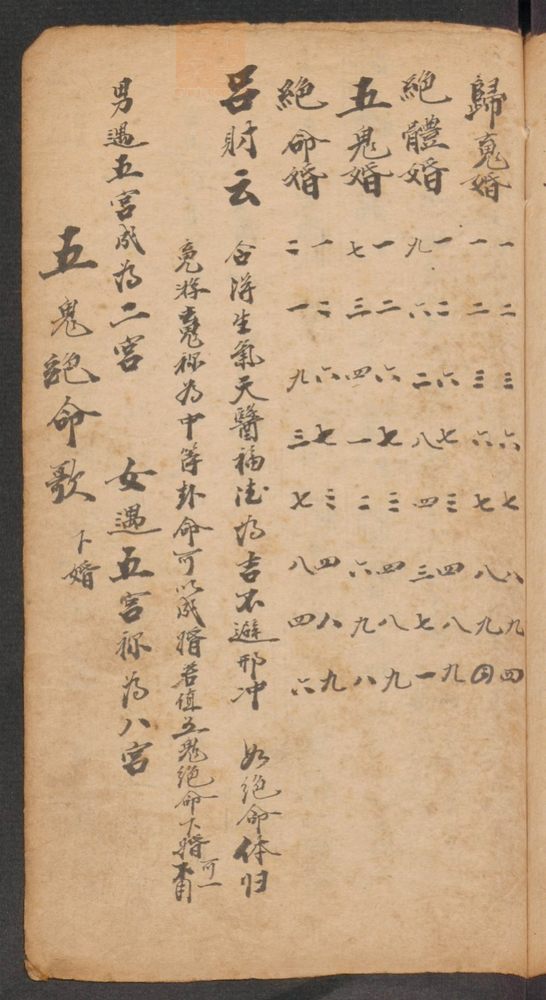 歸䰟婚 一二三六七八九四
一二三六七八九四
絕體婚 一二六七三四八九
九六二八四三七一
五鬼婚 一二六七三四八九
七三四一二六九八
絕命婚 一二六七三四八九
二一九三七八四六
呂財云 合得生氣天醫福德为吉不避刑冲 如絕命体归
䰟将䰟称为中等卦命可以成婚若值五鬼絕命下婚可一不用
男遇五宫成为二宫 女遇五宫称为八宫
五鬼絕命歌 下婚